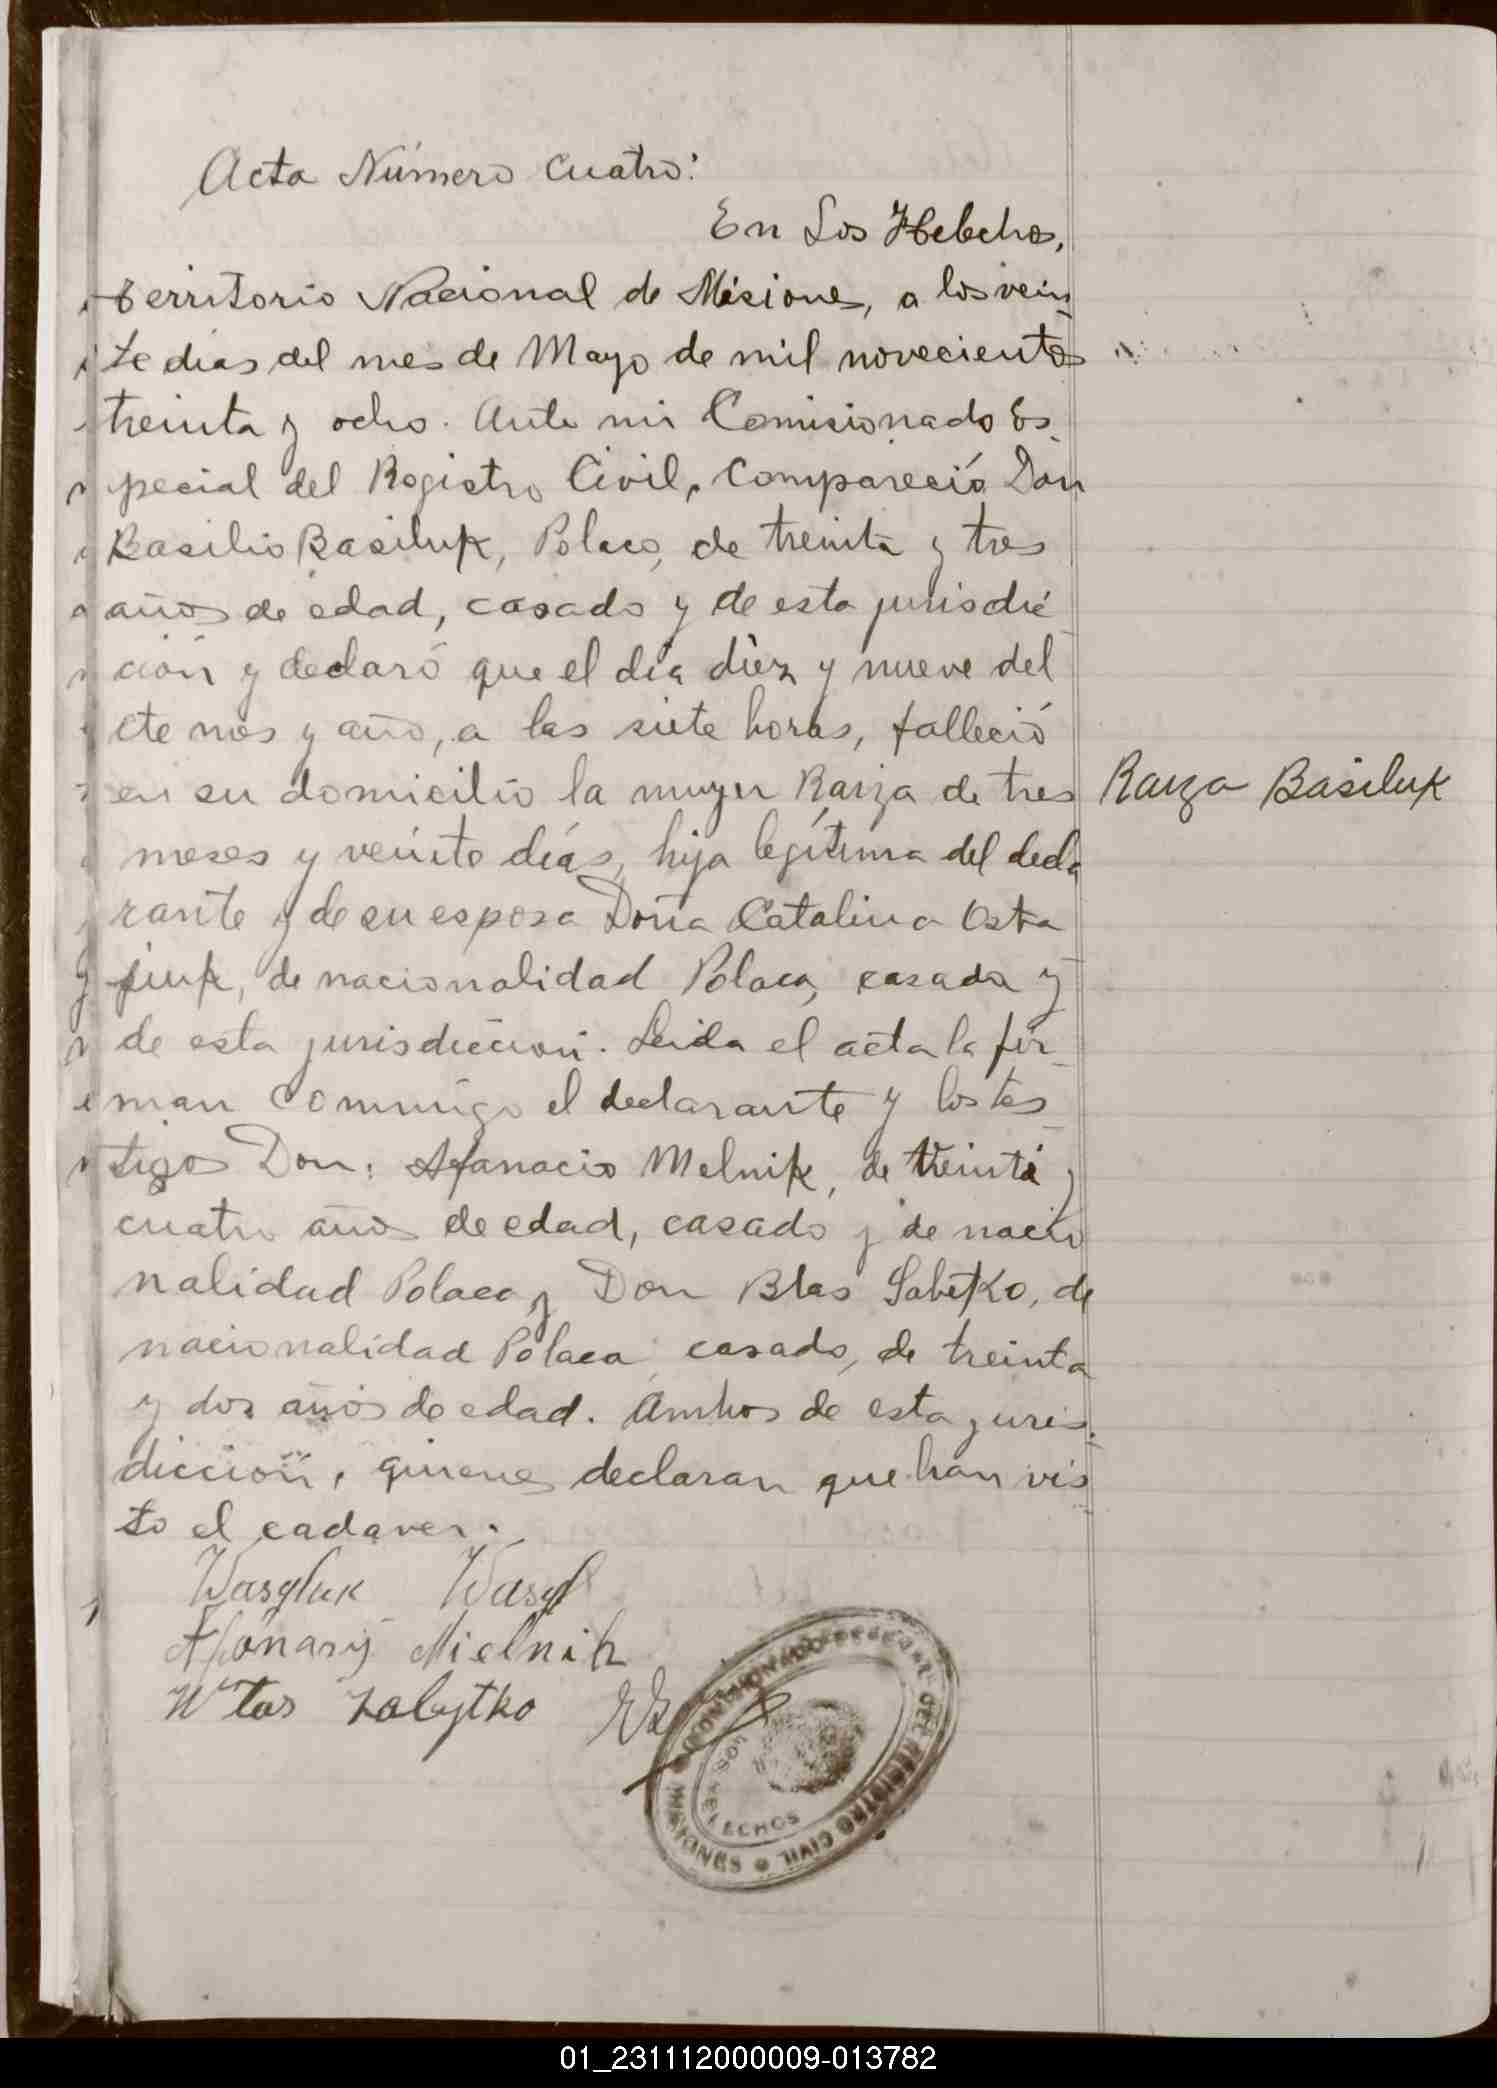 Acta Número Cuatro:
En Los Helechos,
territorio Nacional de Misiones, a los vein
te dias del mes de Mayo de mil novecientos
treinta y ocho. Ante mi Comisionado Es
pecial del Registro Civil, Compareció Don
Basilio Basiluk, Polaco, de treinta y tres
años de edad, casado y de esta jurisdic
ción y declaró que el día diez y nueve del
cte mes y año, a las siete horas, falleció
en su domicilio la mujer Raiza de tres
Raiza Basiluk
meses y veinte días, hija legítima del decla
rante y de su esposa Doña Catalina Osta
piuk, de nacionalidad Polaca, casada y
de esta jurisdiccion. Leida el acta la fir
man conmigo el declarante y los tes
tigos Don: Afanacio Melnik, de treinta y
cuatro años de edad, casado y de nacio
nalidad Polaca y Don Blas Sabetko, de
nacionalidad Polaca, casado, de treinta
y dos años de edad. Ambos de esta juris
dicción, quienes declaran que han vis
to el cadaver.
Wasyluk Wasyl
Afonasij Mielnik
W'tas Zabytko
COMISIONADO DEL REGISTRO CIVIL
LOS HELECHOS
MISIONES
01_231112000009-013782